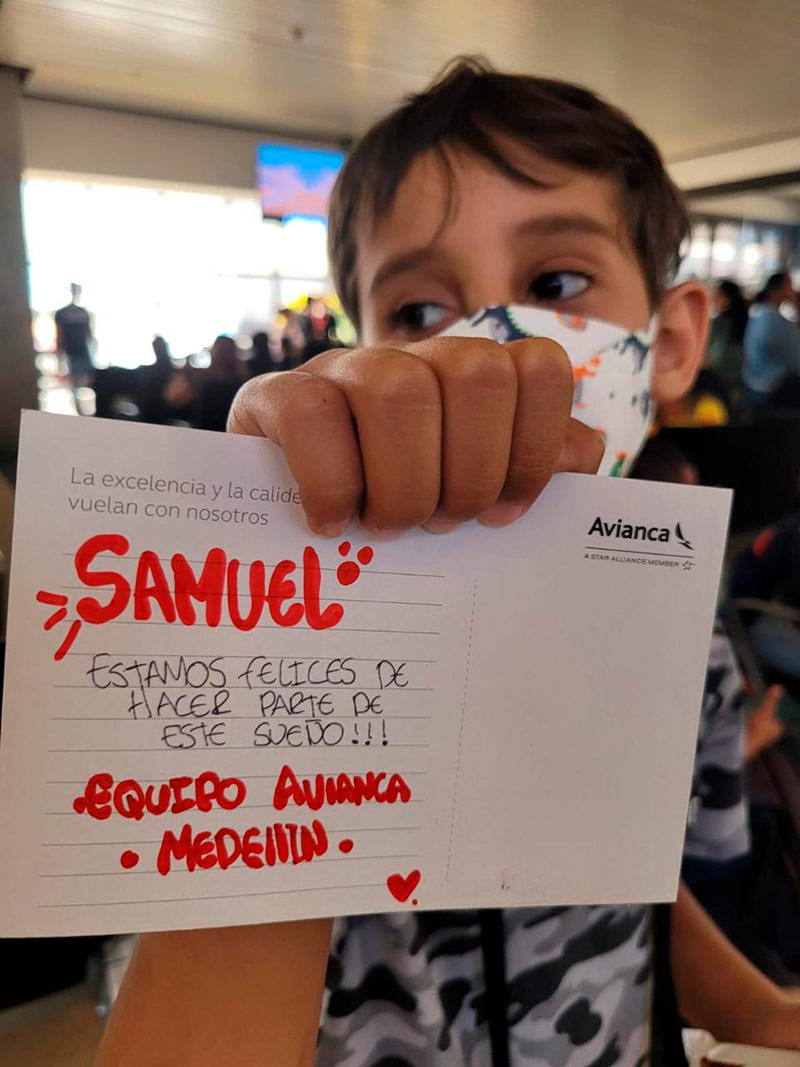 La excelencia y la calid
vuelan con nosotros
Avianca
A STAR ALLIANCE MEMBER
SAMUEL
ESTAMOS FELICES DE
HACER PARTE DE
ESTE SUEÑO!!!
EQUIPO AVIANCA
• MEDELLIN •